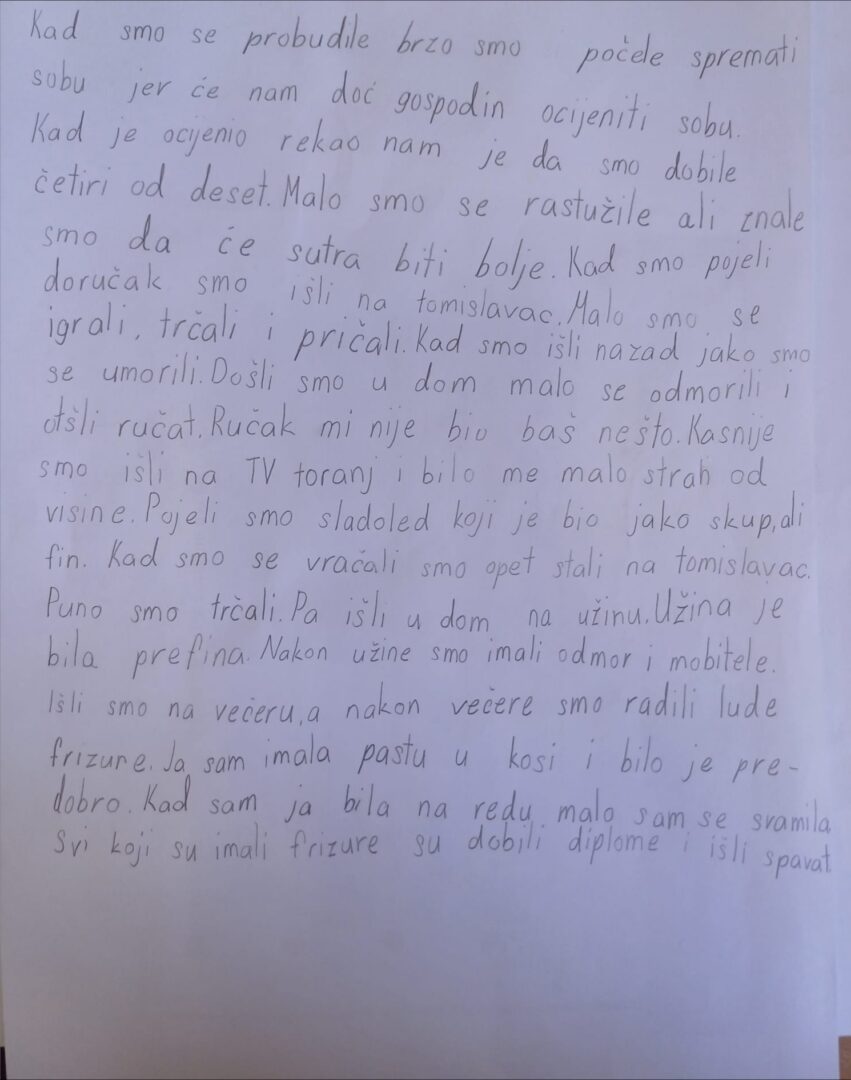 Kad smo se probudile brzo smo počele spremati
sobu jer će nam doć gospodin ocijeniti sobu.
Kad je ocijenio rekao nam je da smo dobile
četiri od deset. Malo smo se rastužile ali znale
smo da će sutra biti bolje. Kad smo pojeli
doručak smo išli na tomislavac. Malo smo se
igrali, trčali i pričali. Kad smo išli nazad jako smo
se umorili. Došli smo u dom malo se odmorili i
otšli ručat. Ručak mi nije bio baš nešto. Kasnije
smo išli na TV toranj i bilo me malo strah od
visine. Pojeli smo sladoled koji je bio jako skup, ali
fin. Kad smo se vraćali smo opet stali na tomislavac.
Puno smo trčali. Pa išli u dom na užinu. Užina je
bila prefina. Nakon užine smo imali odmor i mobitele.
Išli smo na večeru, a nakon večere smo radili lude
frizure. Ja sam imala pastu u kosi i bilo je pre-
dobro. Kad sam ja bila na redu malo sam se sramila
Svi koji su imali frizure su dobili diplome i išli spavat